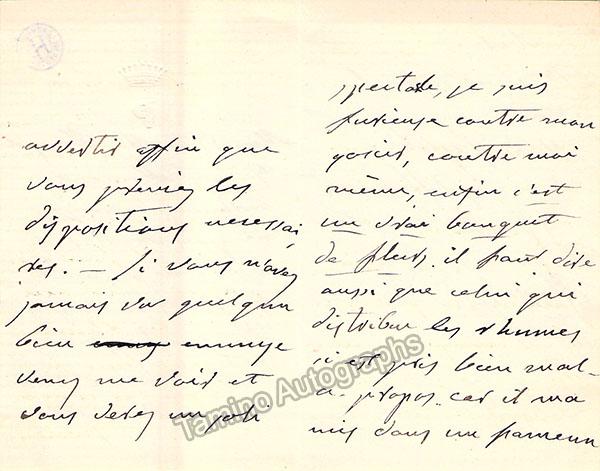 avvertir affin que
vous preniez les
dispositions necessai
res. — Si vous n'avez
jamais vu quelqun
bien ennuye
venez me voir et
vous verez un joli
spectacle, je suis
furieuse contre mon
gosier, contre moi
même, enfin c'est
un vrai bouquet
de fleurs. il faut dire
aussi que celui qui
distribue les rhumes
s'est pris bien mal-
a-propos. car il m'a
mis dans un fameux
Tamino Autographs